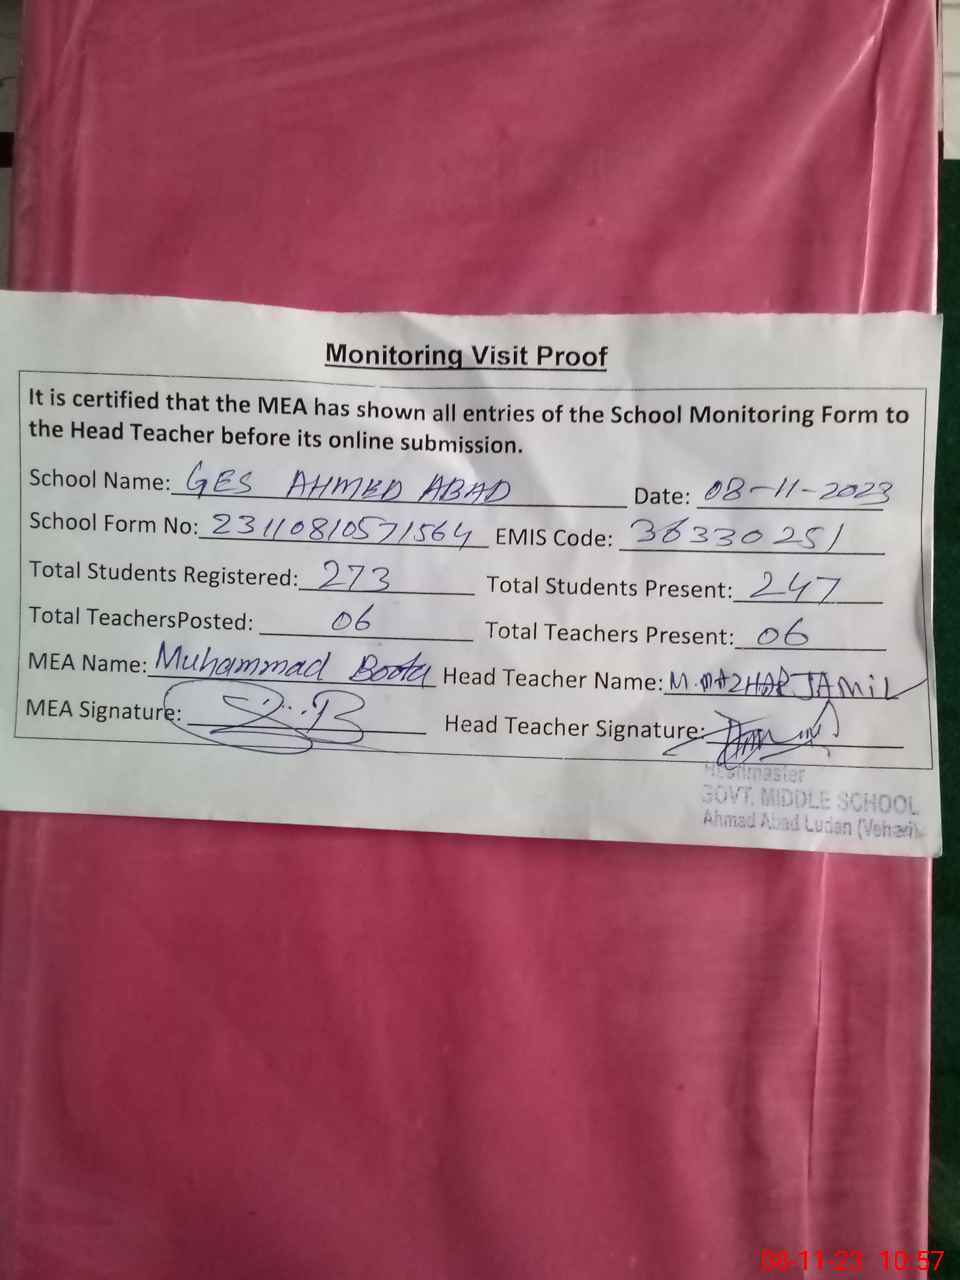 Monitoring Visit Proof
It is certified that the MEA has shown all entries of the School Monitoring Form to
the Head Teacher before its online submission.
School Name: GES AHMED ABAD Date: 08-11-2023
School Form No: 23110810571564 EMIS Code: 36330251
Total Students Registered: 273 Total Students Present: 247
Total TeachersPosted: 06 Total Teachers Present: 06
MEA Name: Muhammad Boota Head Teacher Name: M.MAZHAR JAMIL
MEA Signature: Head Teacher Signature:
Headmaster
GOVT. MIDDLE SCHOOL
Ahmad Abad Ludan (Vehari)
08-11-23 10:57